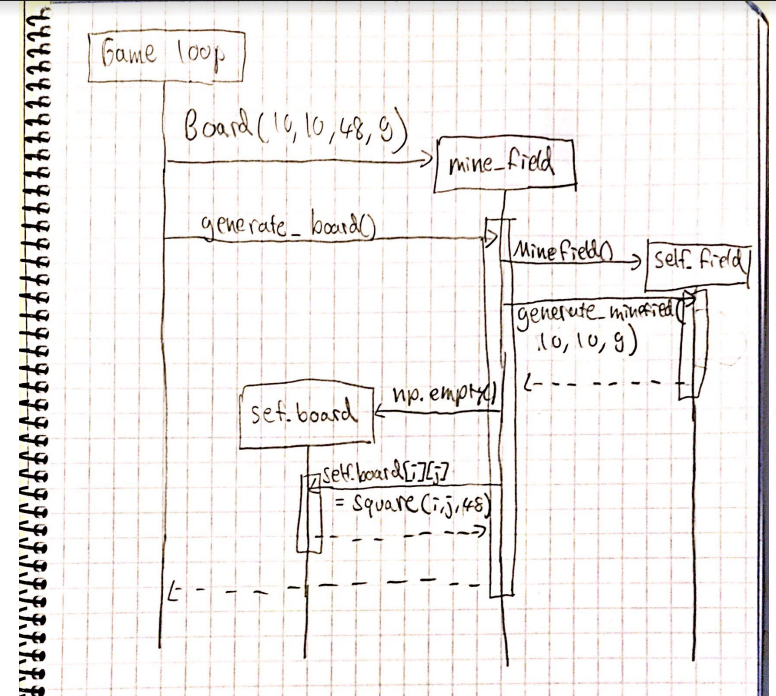 Game loop
Board(10,10,48,9)
mine_field
generate_board()
Minefield()
self.field
generate_minefied(
10, 10, 9)
np.empty()
sef.board
self.board[i][j]
= Square(i,j,48)